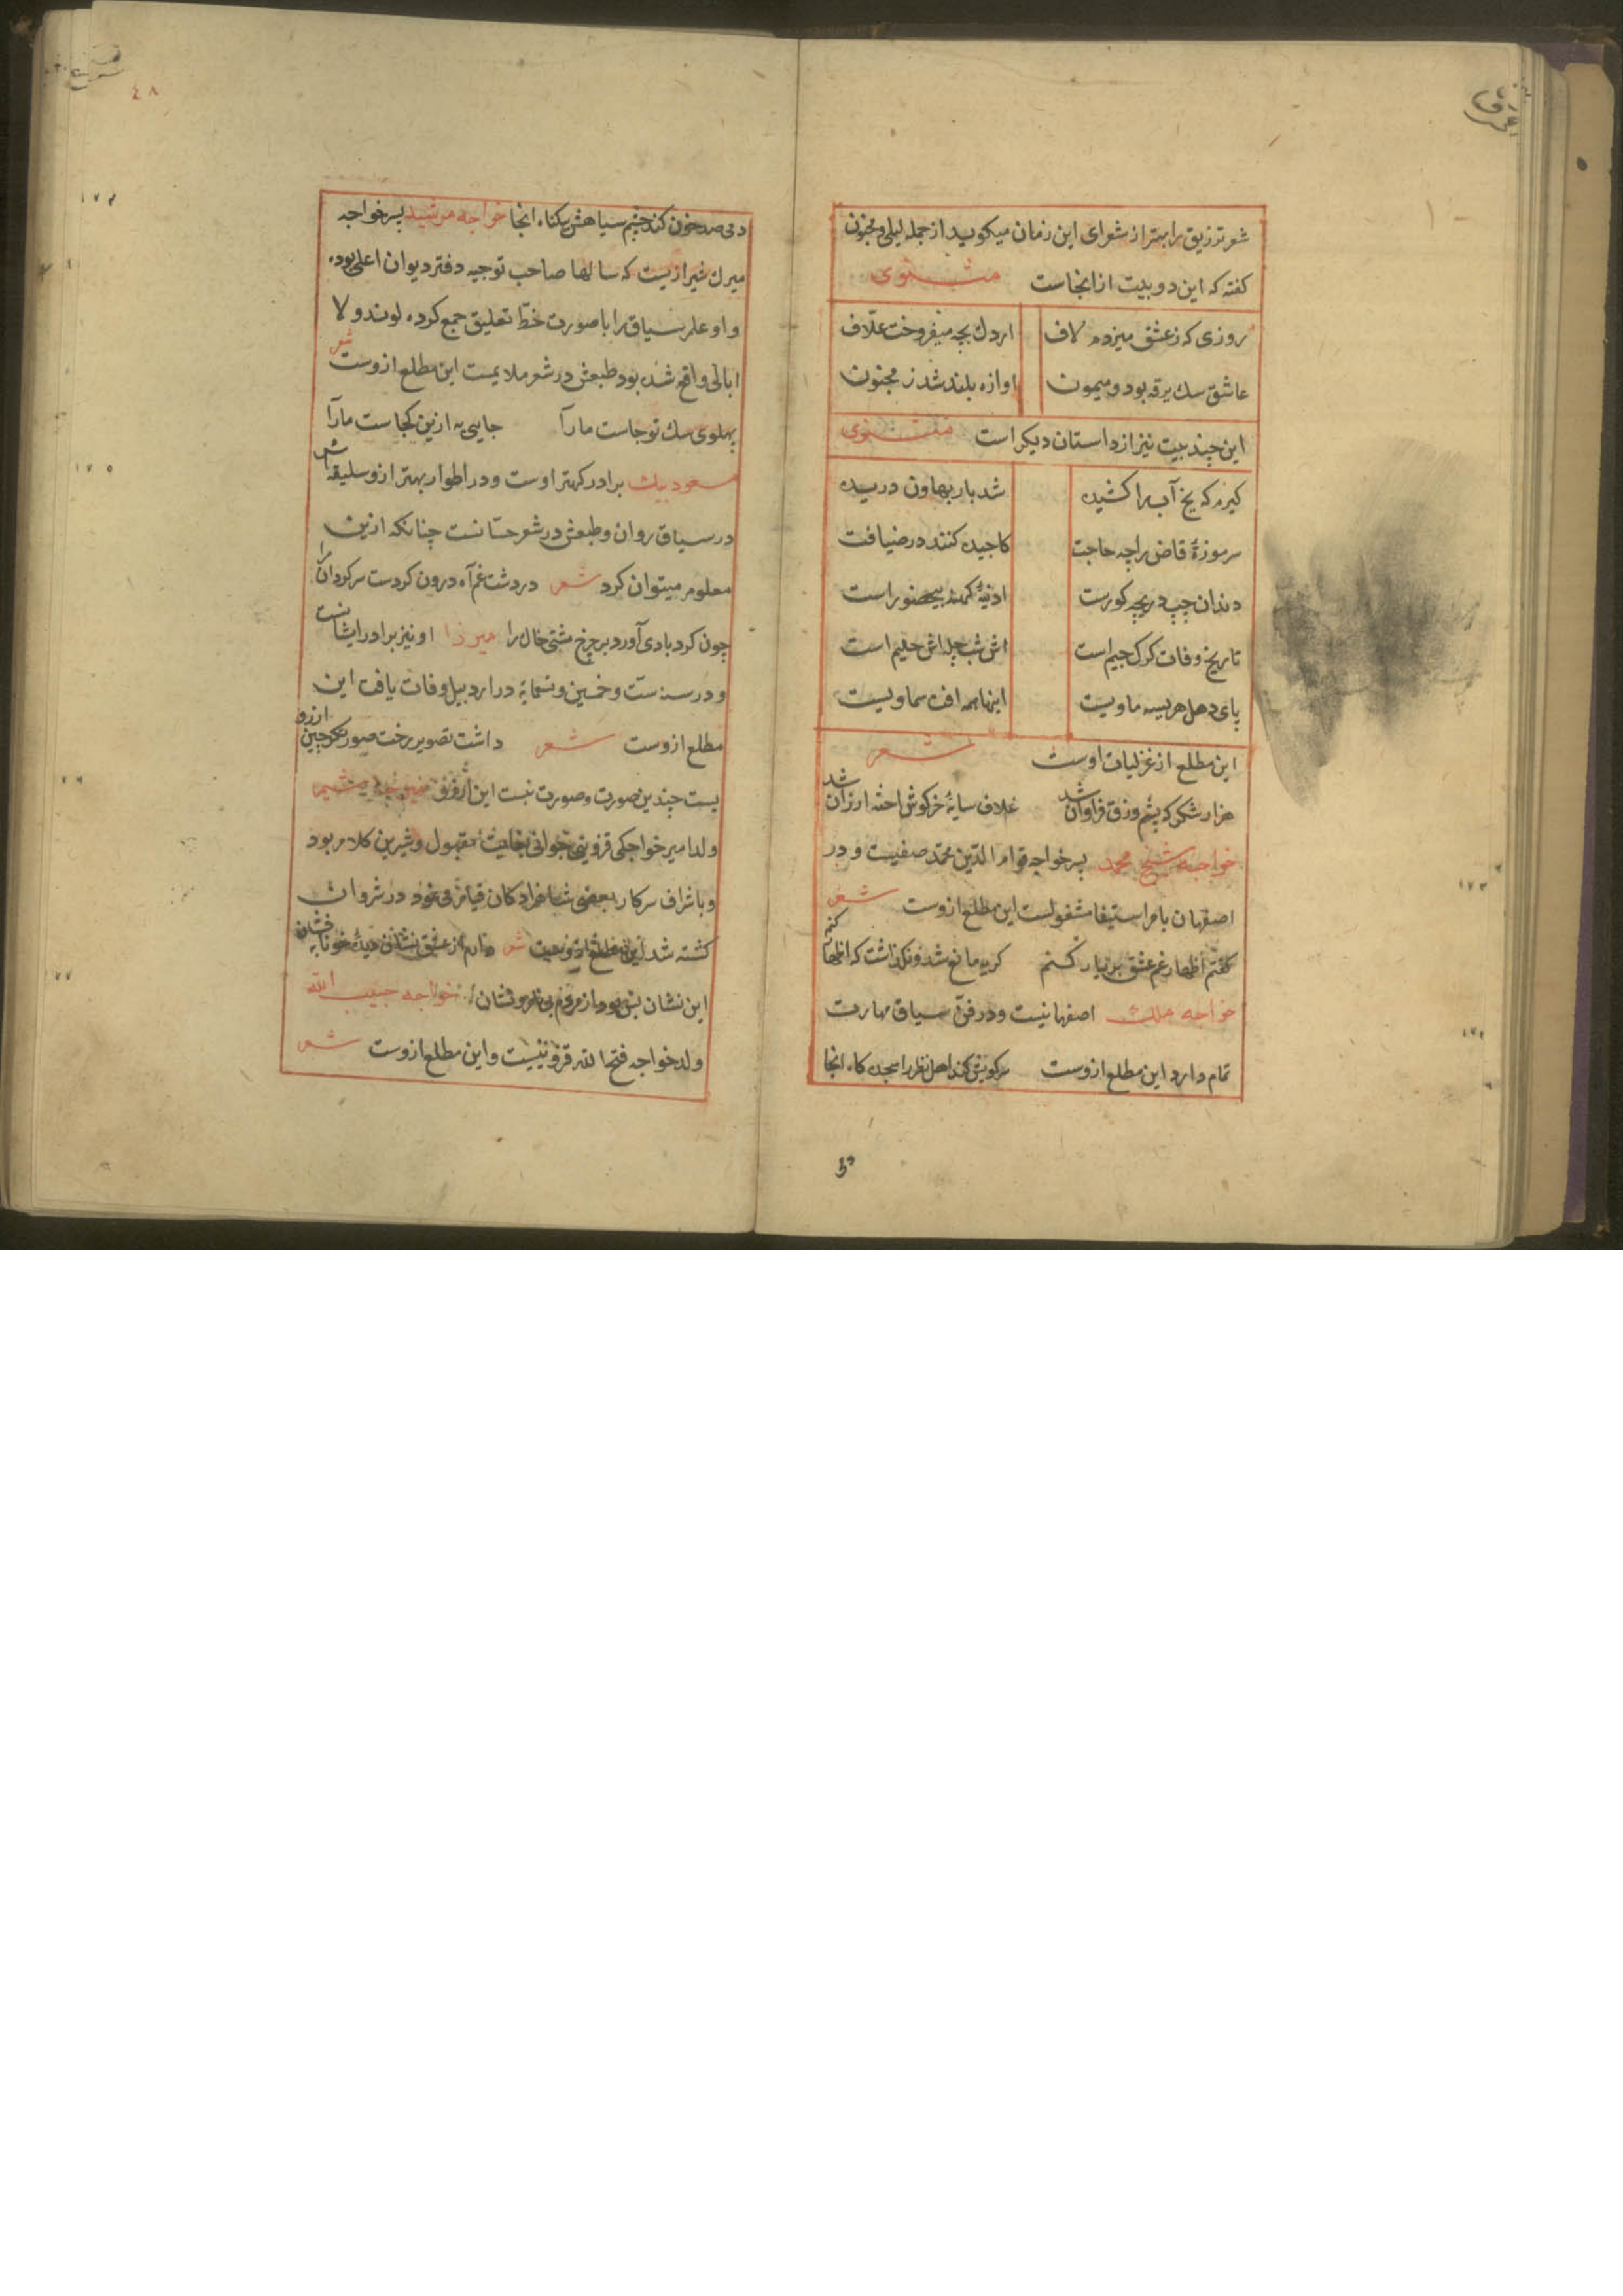 شعر تزریق را بهتر از شعرای این زمان میکوید از جمله لیلی و مجنون
کفته که این دو بیت از انجاست مثنوی
روزی که ز عشق میزدم لاف اردک بچه میفروخت علاف
عاشق سک برقه بود و میمون اوازه بلند شد ز مجنون
این چند بیت نیز از داستان دیکر است مثنوی
کیرم که یخ آب را کشیده شد بار بهاون دریده
سر موزهٔ قاض را چه حاجت کاجیده کنند در ضیافت
دندان چپ دریچه کورست
تاریخ وفات کرک جیم است اش شب چله اش حلیم است
پای دهل هریسه ماویست اینها همه افت سماویست
این مطلع از غزلیات اوست شعر
هزار شکر که پشم وزق فراوان شد غلاف سایهٔ خرکوش اخته ارزان شد
خواجه شیخ محمد پسر خواجه قوام الدین محمد صفیست و در
اصفهان بامر استیفا مشغولست این مطلع ازوست شعر
کفتم اظهار غم عشق بر یار کنم کریه مانع شد و نکذاشت که اظهار کنم
خواجه ملک اصفهانیست و در فن سیاق مهارت
تمام دارد این مطلع ازوست سر کویش کند اهل نظر را سجده کاه انجا
دمی
٤٨
دمی صد خون کند چشم سیاهش بیکناه انجا خواجه مرشد پسر خواجه
میرک شیرازیست که سالها صاحب توجیه دفتر دیوان اعلی بوده
و او علم سیاق را با صورت خط تعلیق جمع کرده لوند و لا
ابالی واقع شده بود طبعش در شعر ملایمست این مطلع ازوست شعر
پهلوی سک تو جاست مارا جایی به ازین کجاست مارا
مسعود بیک برادر کهتر اوست و در اطوار بهتر ازو سلیقه اش
در سیاق روان و طبعش در شعر حسانست چنانکه ازین
معلوم میتوان کرد شعر در دشت غم آه درون کردست سرکردان مرا
چون کردبادی آورد بر چرخ مشتی خاک را میرزا او نیز برادر ایشانست
و در سنه ست و خمسین و تسمایة در اردبیل وفات یافت این
مطلع ازوست شعر داشت تصویر رخت صورتکر چین ارزو
بست چندین صورت و صورت نبست این ارزو
ولد امیر خواجکی قزوینی جوانی بغایت مقبول و شیرین کلام بود
و باشراف سرکار بعضی شاهزادکان قیام می نمود در شروان
کشته شد این مطلع ازوست شعر دارم از عشق نشان دیدهٔ خونابه فشان
این نشان بس بود از مردم بی نام و نشان خواجه حبیب الله
ولد خواجه فتح الله قزوینیست و این مطلع ازوست شعر